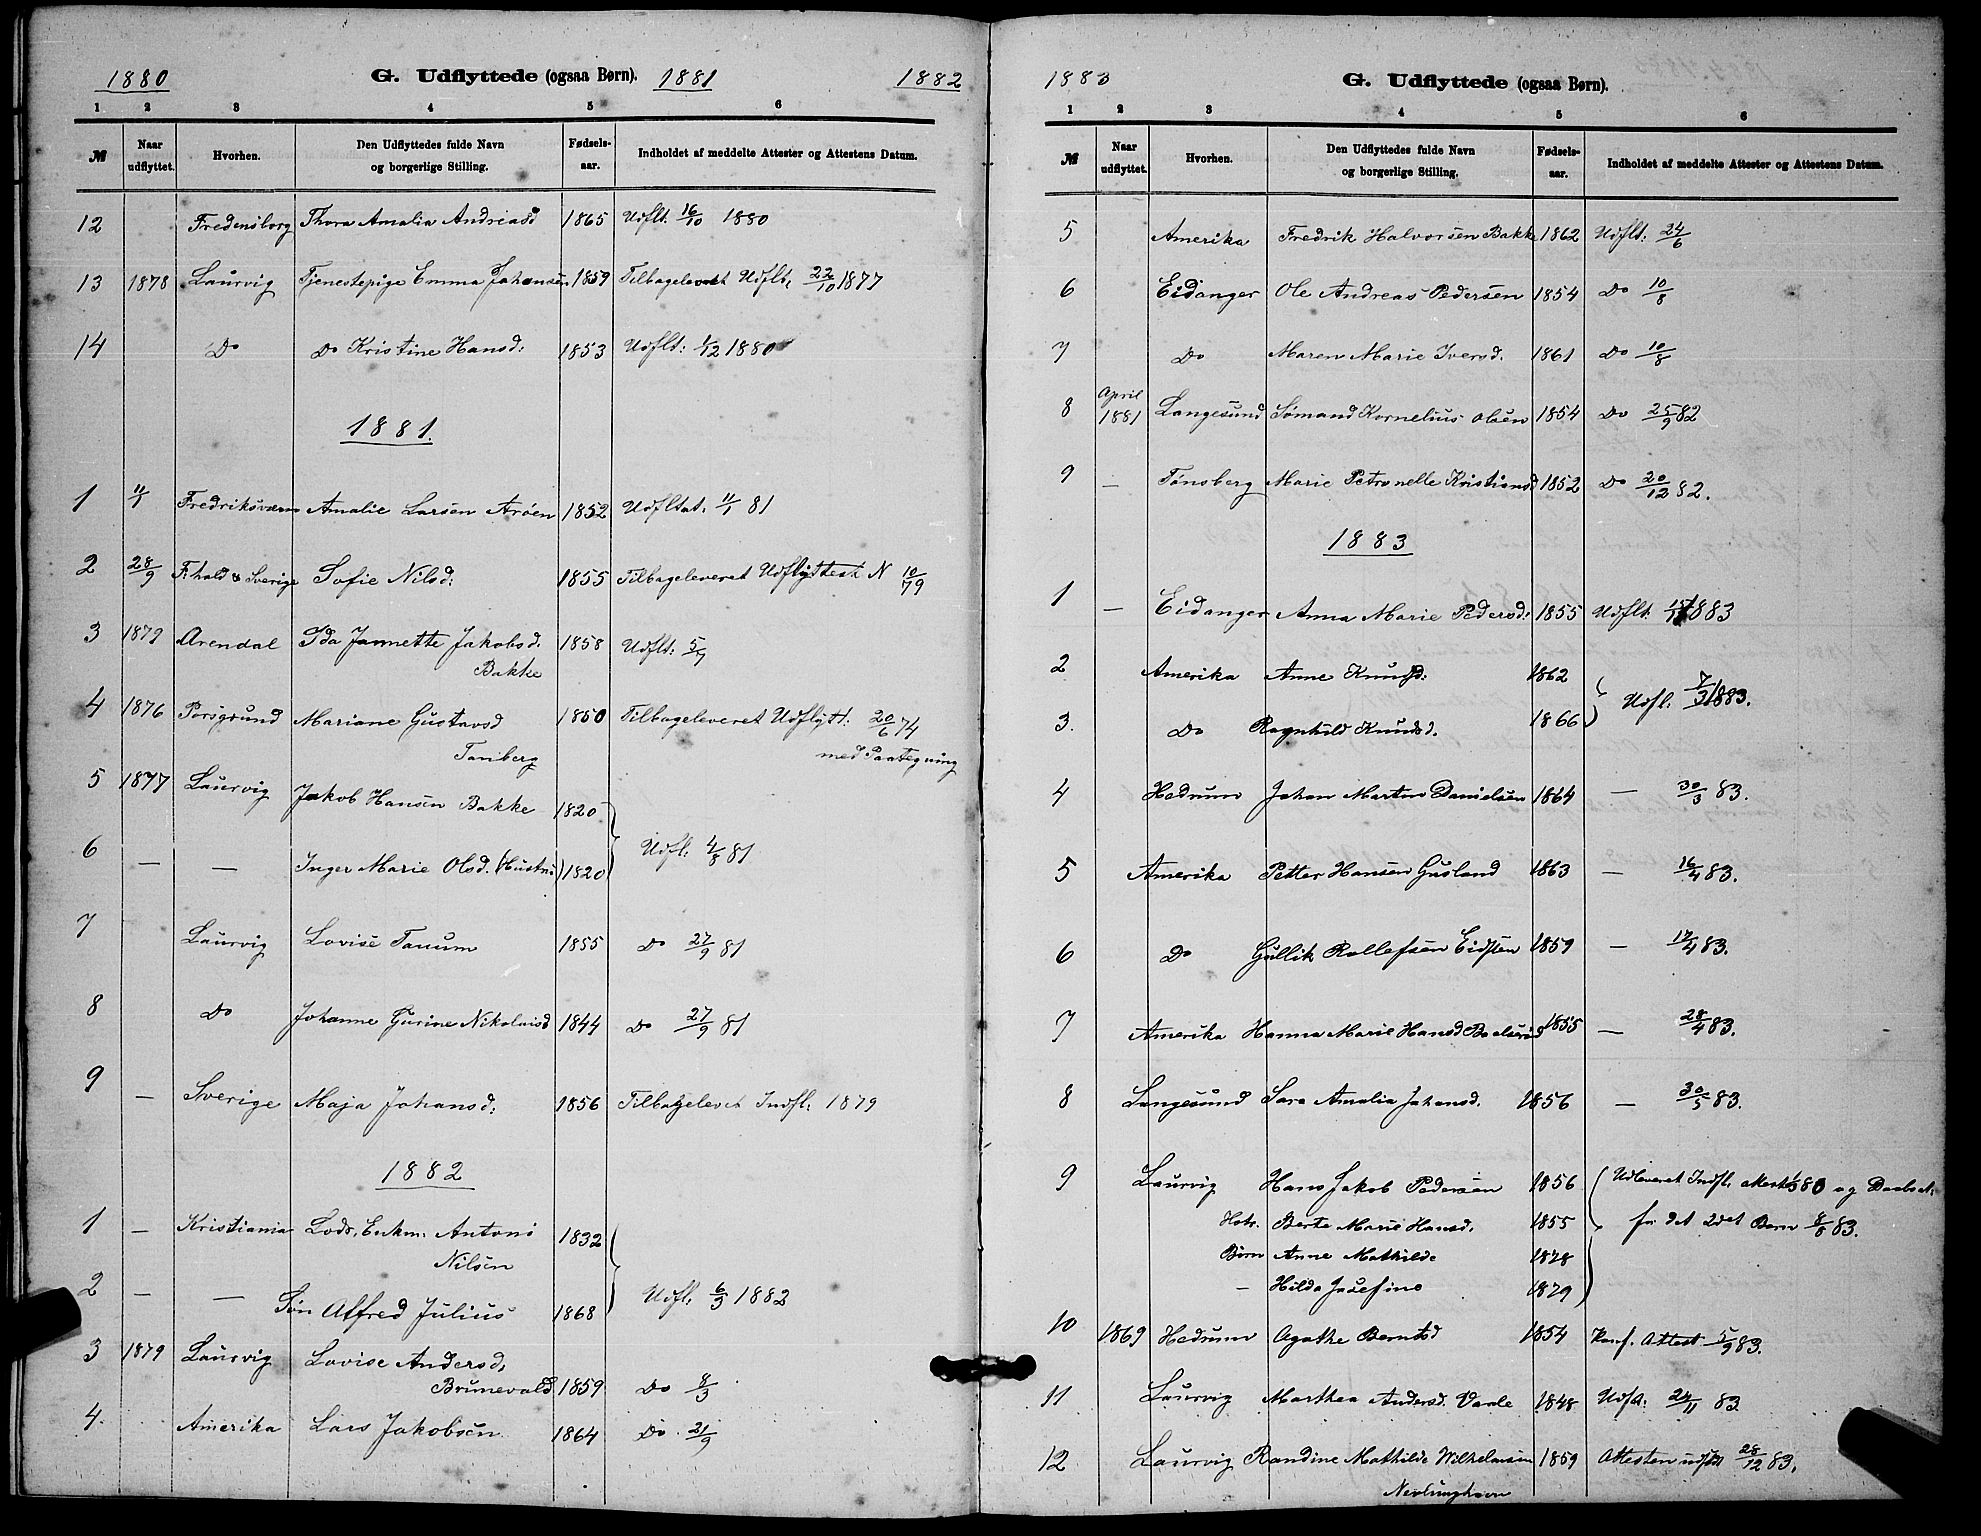 1880 G. Udflyttede (ogsaa Børn). 1881 1882
1 2 3 4 5 6
№ Naar udflyttet. Hvorhen. Den Udflyttedes fulde Navn og borgerlige Stilling. Fødsels-aar. Indholdet af meddelte Attester og Attestens Datum.
12 Fredensborg Thora Amalia Andreasd 1865 Udflt. 16/10 1880
13 1878 Laurvig Tjenestepige Emma Johansen 1859 Tilbageleveret Udflt. 22/10 1877
14 Do Do Kristine Hansd: 1853 Udflt: 1/12 1880
1881.
1 11/1 Fredriksværn Amalie Larsen Arøen 1852 Udfltat. 11/1 81
2 28/9 F:hald & Sverige Sofie Nilsd: 1855 Tilbageleveret Udflyttest N 10/79
3 1879 Arendal Ida Jannette Jakobsd. 1858 Udflt: 5/7
Bakke
4 1876 Porsgrund Mariane Gustavsd 1850 Tilbageleveret Udflytt: 20/6 74
Tanberg med Paategning
5 1877 Laurvig Jakob Hansen Bakke 1820
6 — — Inger Marie Olsd. (Hustru) 1820 Udfl. 4/8 81
7 Laurvig Lovise Tanum 1855 Do 27/9 81
8 Do Johanne Gurine Nikolaisd 1844 Do 27/9 81
9 — Sverige Maja Johansd: 1856 Tilbagelevet Indfl. 1879
1882
1 — Kristiania Lods. Enkm: Antoni 1832
Nilsen
2 — — Søn Alfred Julius 1868 Udfl. 6/3 1882
3 1879 Laurvig Lovise Andersd,
Brunevald 1859 Do 8/3
4. Amerika Lars Jakobsen 1864 Do. 21/9
1883 G. Udflyttede (ogsaa Børn).
1 2 3 4 5 6
№ Naar udflyttet. Hvorhen. Den Udflyttedes fulde Navn og borgerlige Stilling. Fødsels-aar. Indholdet af meddelte Attester og Attestens Datum.
5 Amerika Fredrik Halvorsen Bakke 1862 Udflt: 24/6
6 Eidanger Ole Andreas Pedersen 1854 Do 10/8
7 Do Maren Marie Iversd. 1861 Do 10/8
8 April 1881 Langesund Sømand Kornelius Olsen 1854 Do 25/9 82
9 — Tønsberg Marie Petronelle Kristiansd 1852 Do 20/12 82.
1883
1 — Eidanger Anna Marie Pedersd: 1855 Udflt. 15/1 1883
2 Amerika Anne Knudsd: 1862
3. Do Ragnhild Knudsd. 1866 Udfl: 7/3 1883.
4 Hedrum Johan Martin Danielsen 1864 — 30/3 83.
5 Amerika Petter Hansen Gusland 1863 — 16/4 83.
6 Do Gullik Rollefsen Eidsten 1859 — 17/4 83.
7 Amerika Hanna Marie Hansd 1855 — 28/4 83.
8 Langesund Sara Amalia Johansd. 1856 — 30/5 83.
9 Laurvig Hans Jakob Pedersen 1856 Udleveret Indfl. og
Hstr. Berte Marie Hansd. 1855 for det 2det Barn 8/8 83.
Børn Anne Mathilde 1878
— Hilda Josefine 1879
10 1869 Hedrum Agathe Berntsd 1854 Konf. Attest 5/9 83.
11 Laurvig Marthea Andersd. Vaale 1848 Udfst: 24/11 83
12 Laurvig Randine Mathilde Wilhelmsen 1859 Attesten udst 28/12 83.
Nevlunghavn